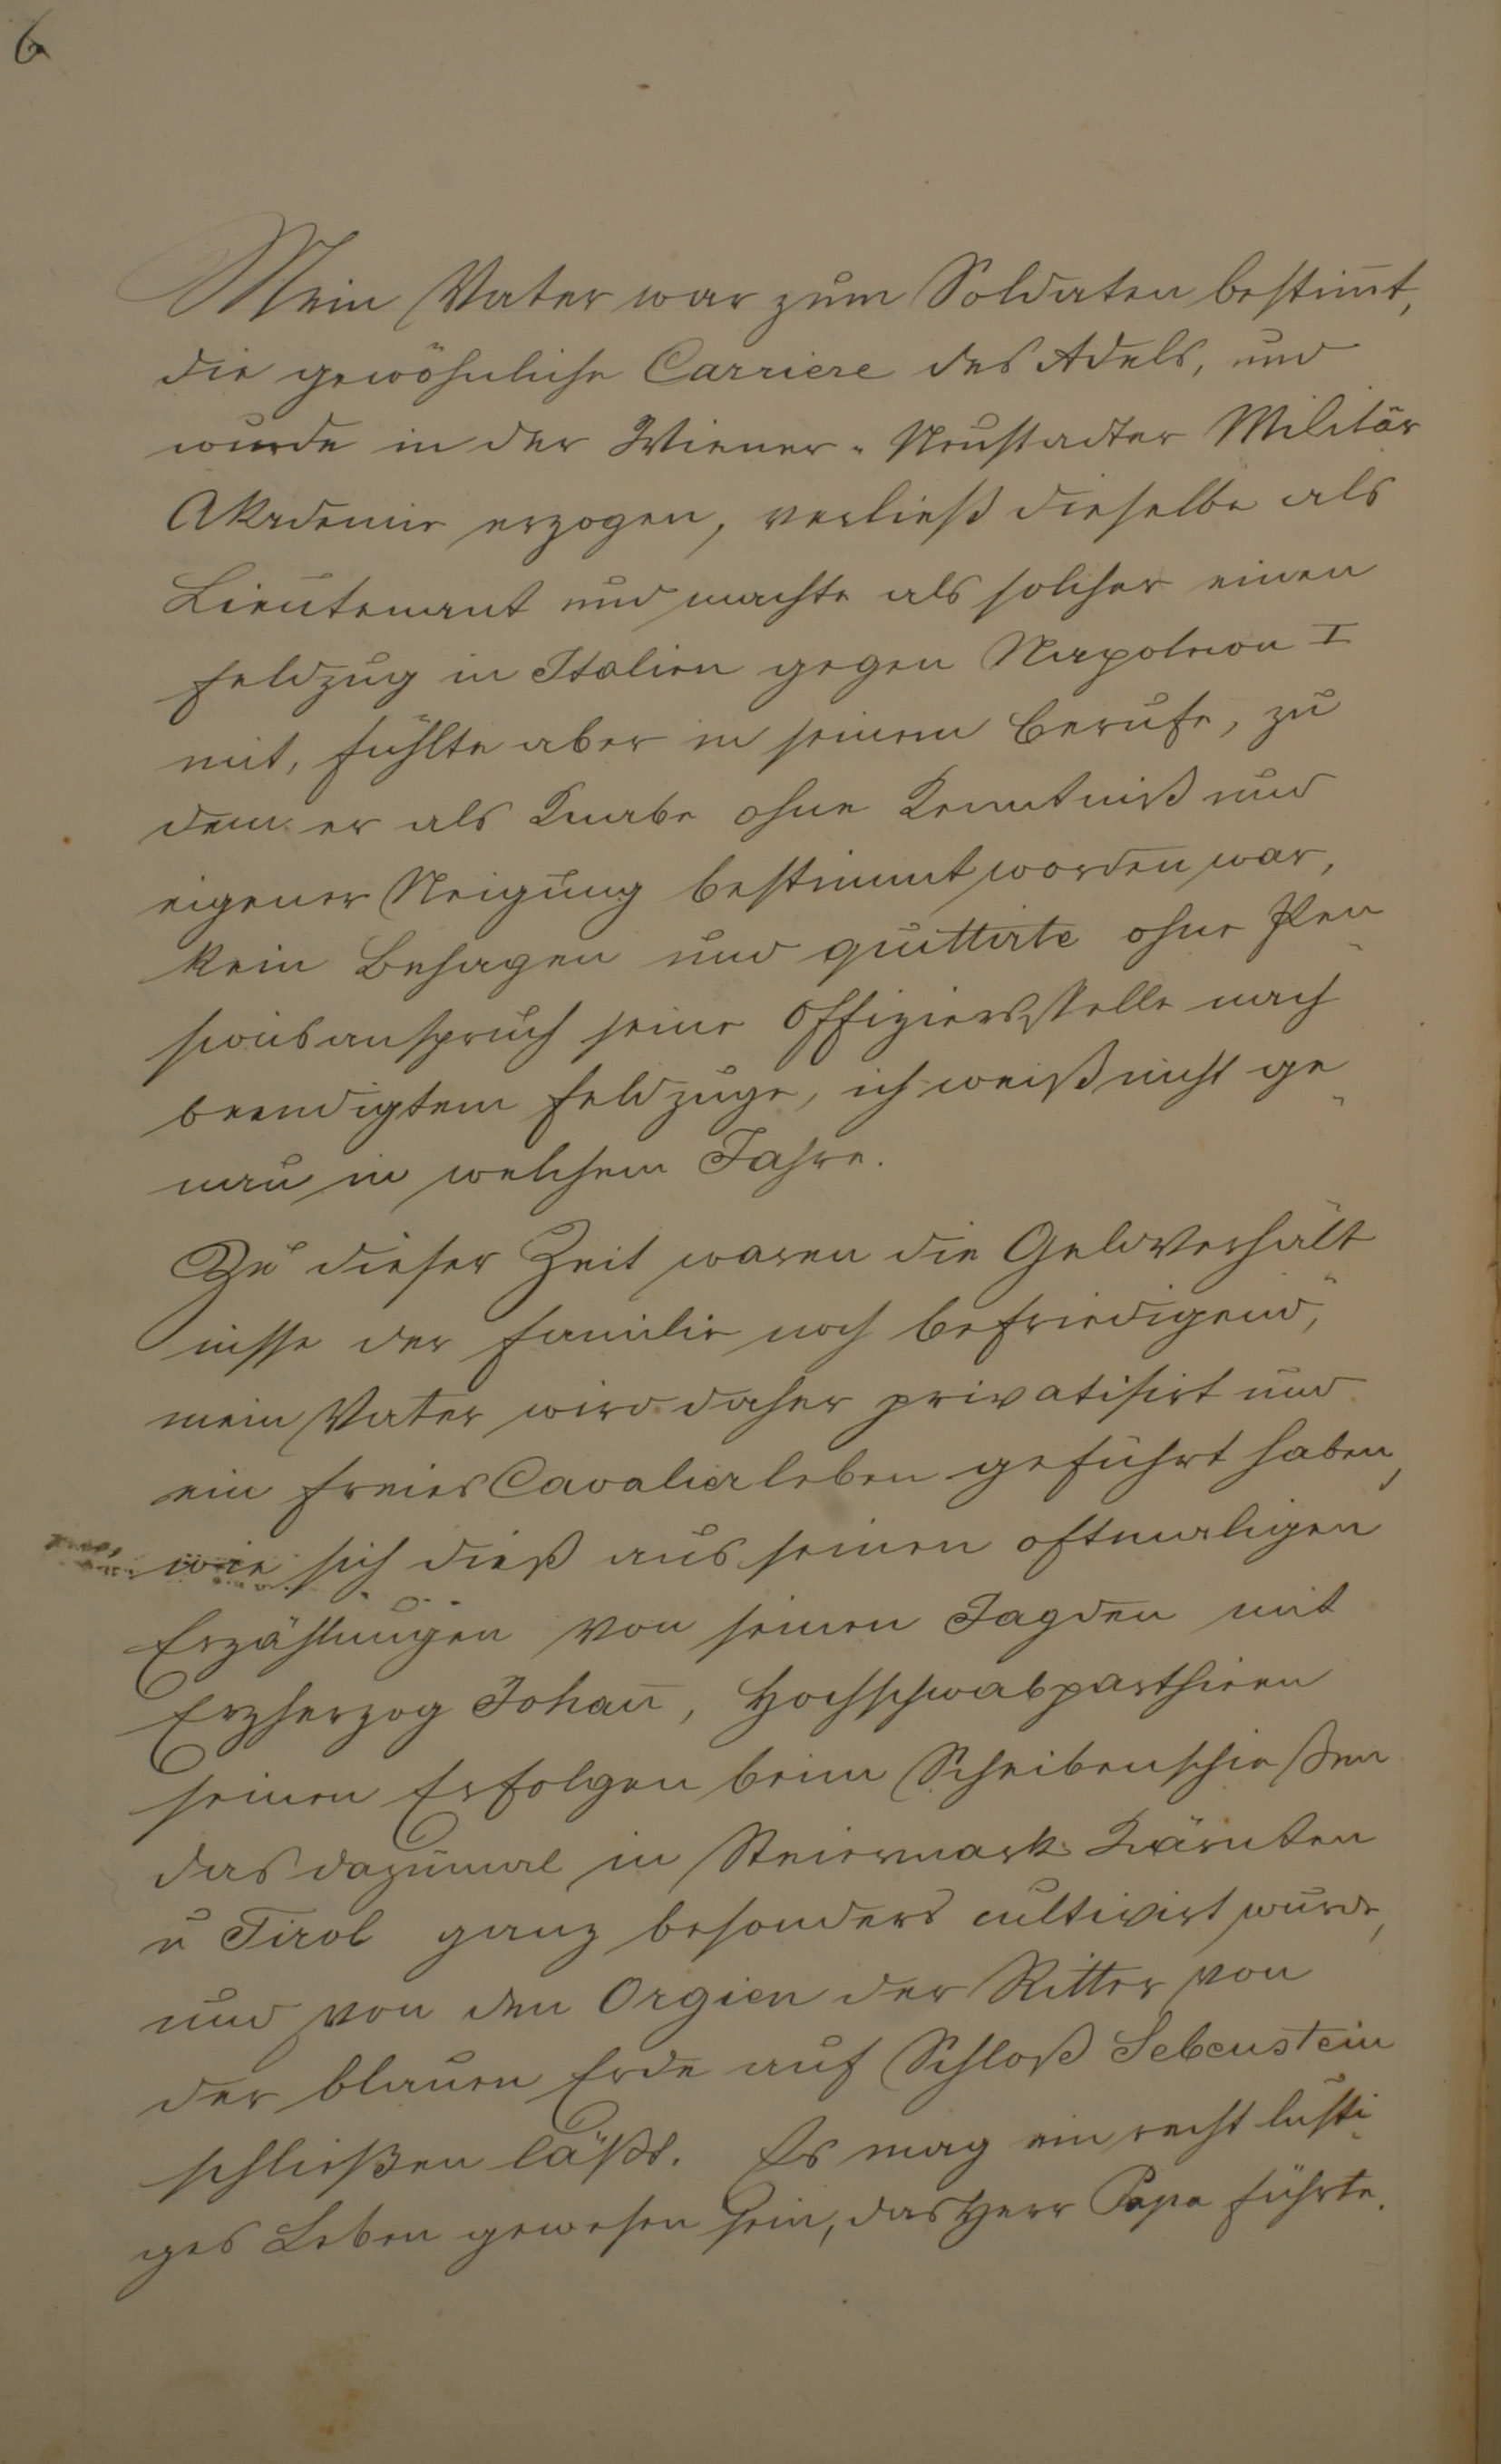 6
Mein Vater war zum Soldaten bestim̄t,
die gewöhnliche Carriere des Adels, und
wurde in der Wiener-Neustadter Militär
Akademie erzogen, verließ dieselbe als
Lieutenant und machte als solcher einen
Feldzug in Italien gegen Napoleon I
mit, fühlte aber in seinem Berufe, zu
dem er als Knabe ohne Kenntniß und
eigener Neigung bestimmt worden war,
kein Behagen und quittirte ohne Pen-
sionsanspruch seine Offiziersstelle nach
beendigtem Feldzuge, ich weiß nicht ge-
nau in welchem Jahre.
Zu dieser Zeit waren die Geldverhält-
nisse der Familie noch befriedigend,
mein Vater wird daher privatisirt und
ein freies Cavalierleben geführt haben,
wie sich dieß aus seinen oftmaligen
Erzählungen von seinen Jagden mit
Erzherzog Johan̄, Hochschwabparthieen
seinen Erfolgen beim Scheibenschießen
das dazumal in Steiermark Kärnten
u Tirol ganz besonders cultivirt wurde,
und von den Orgien der Ritter von
der blauen Erde auf Schloß Sebenstein
schließen läßt. Es mag ein recht lusti-
ges Leben gewesen sein, das Herr Papa führte.